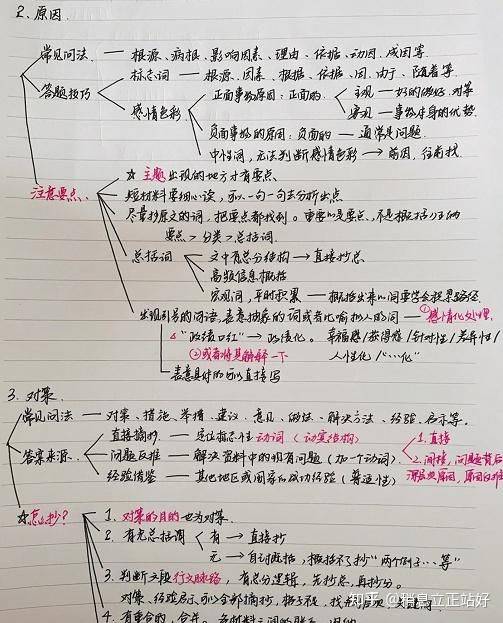 2. 原因
常见问法 — 根源、病根、影响因素、理由、依据、动因、成因等
答题技巧
标志词 — 根源、因素、根据、依据、因、由于、随着等
感情色彩
正面事物原因：正面的
主观 — 好的做好、对策
客观 — 事物本身的优势
负面事物的原因：负面的 — 通常是问题
中性词，无法判断感情色彩 → 前因，往前找
注意要点、
☆ 主题出现的地方才有要点
短材料要细心读，可以一句一句去分析出点
尽量抄原文的词，把要点都找到。重要的是要点，不是概括
要点 > 分类 > 总括词
总括词
文中有总分结构 → 直接抄总
高频信息概括
宏观词，平时积累 — 概括出来
出现引号的词语，表意抽象的词或者比喻拟人的词 — ①感情化处理，
"政绩口红" → 政绩化。幸福感/获得感/针对性/差异性/
人性化/"…化"
②或者将其解释一下
表意具体的可以直接写
3. 对策
常见问法 — 对策、措施、举措、建议、意见、做法、解决方法、经验、启示等。
答案来源
直接摘抄 — 定位标志性动词（动宾结构）
问题反推 — 解决资料中的相有问题（加一个动词）
1. 直接
2. 间接，问题背后深层次原因，原因反推
经验借鉴 — 其他地区或国家的成功经验（普适性）
☆怎么抄？
1. 对策的目的也为对策
2. 有无总括词
有 → 直接抄
无 → 自己概括，概括不了抄"两个例子…等"
3. 判断文段行文脉络，有总分逻辑，先抄总，再抄分。
对策、经验启示可以全部摘抄，格子不够，找
4. 有重合的，合并。
知乎 @稍息立正站好